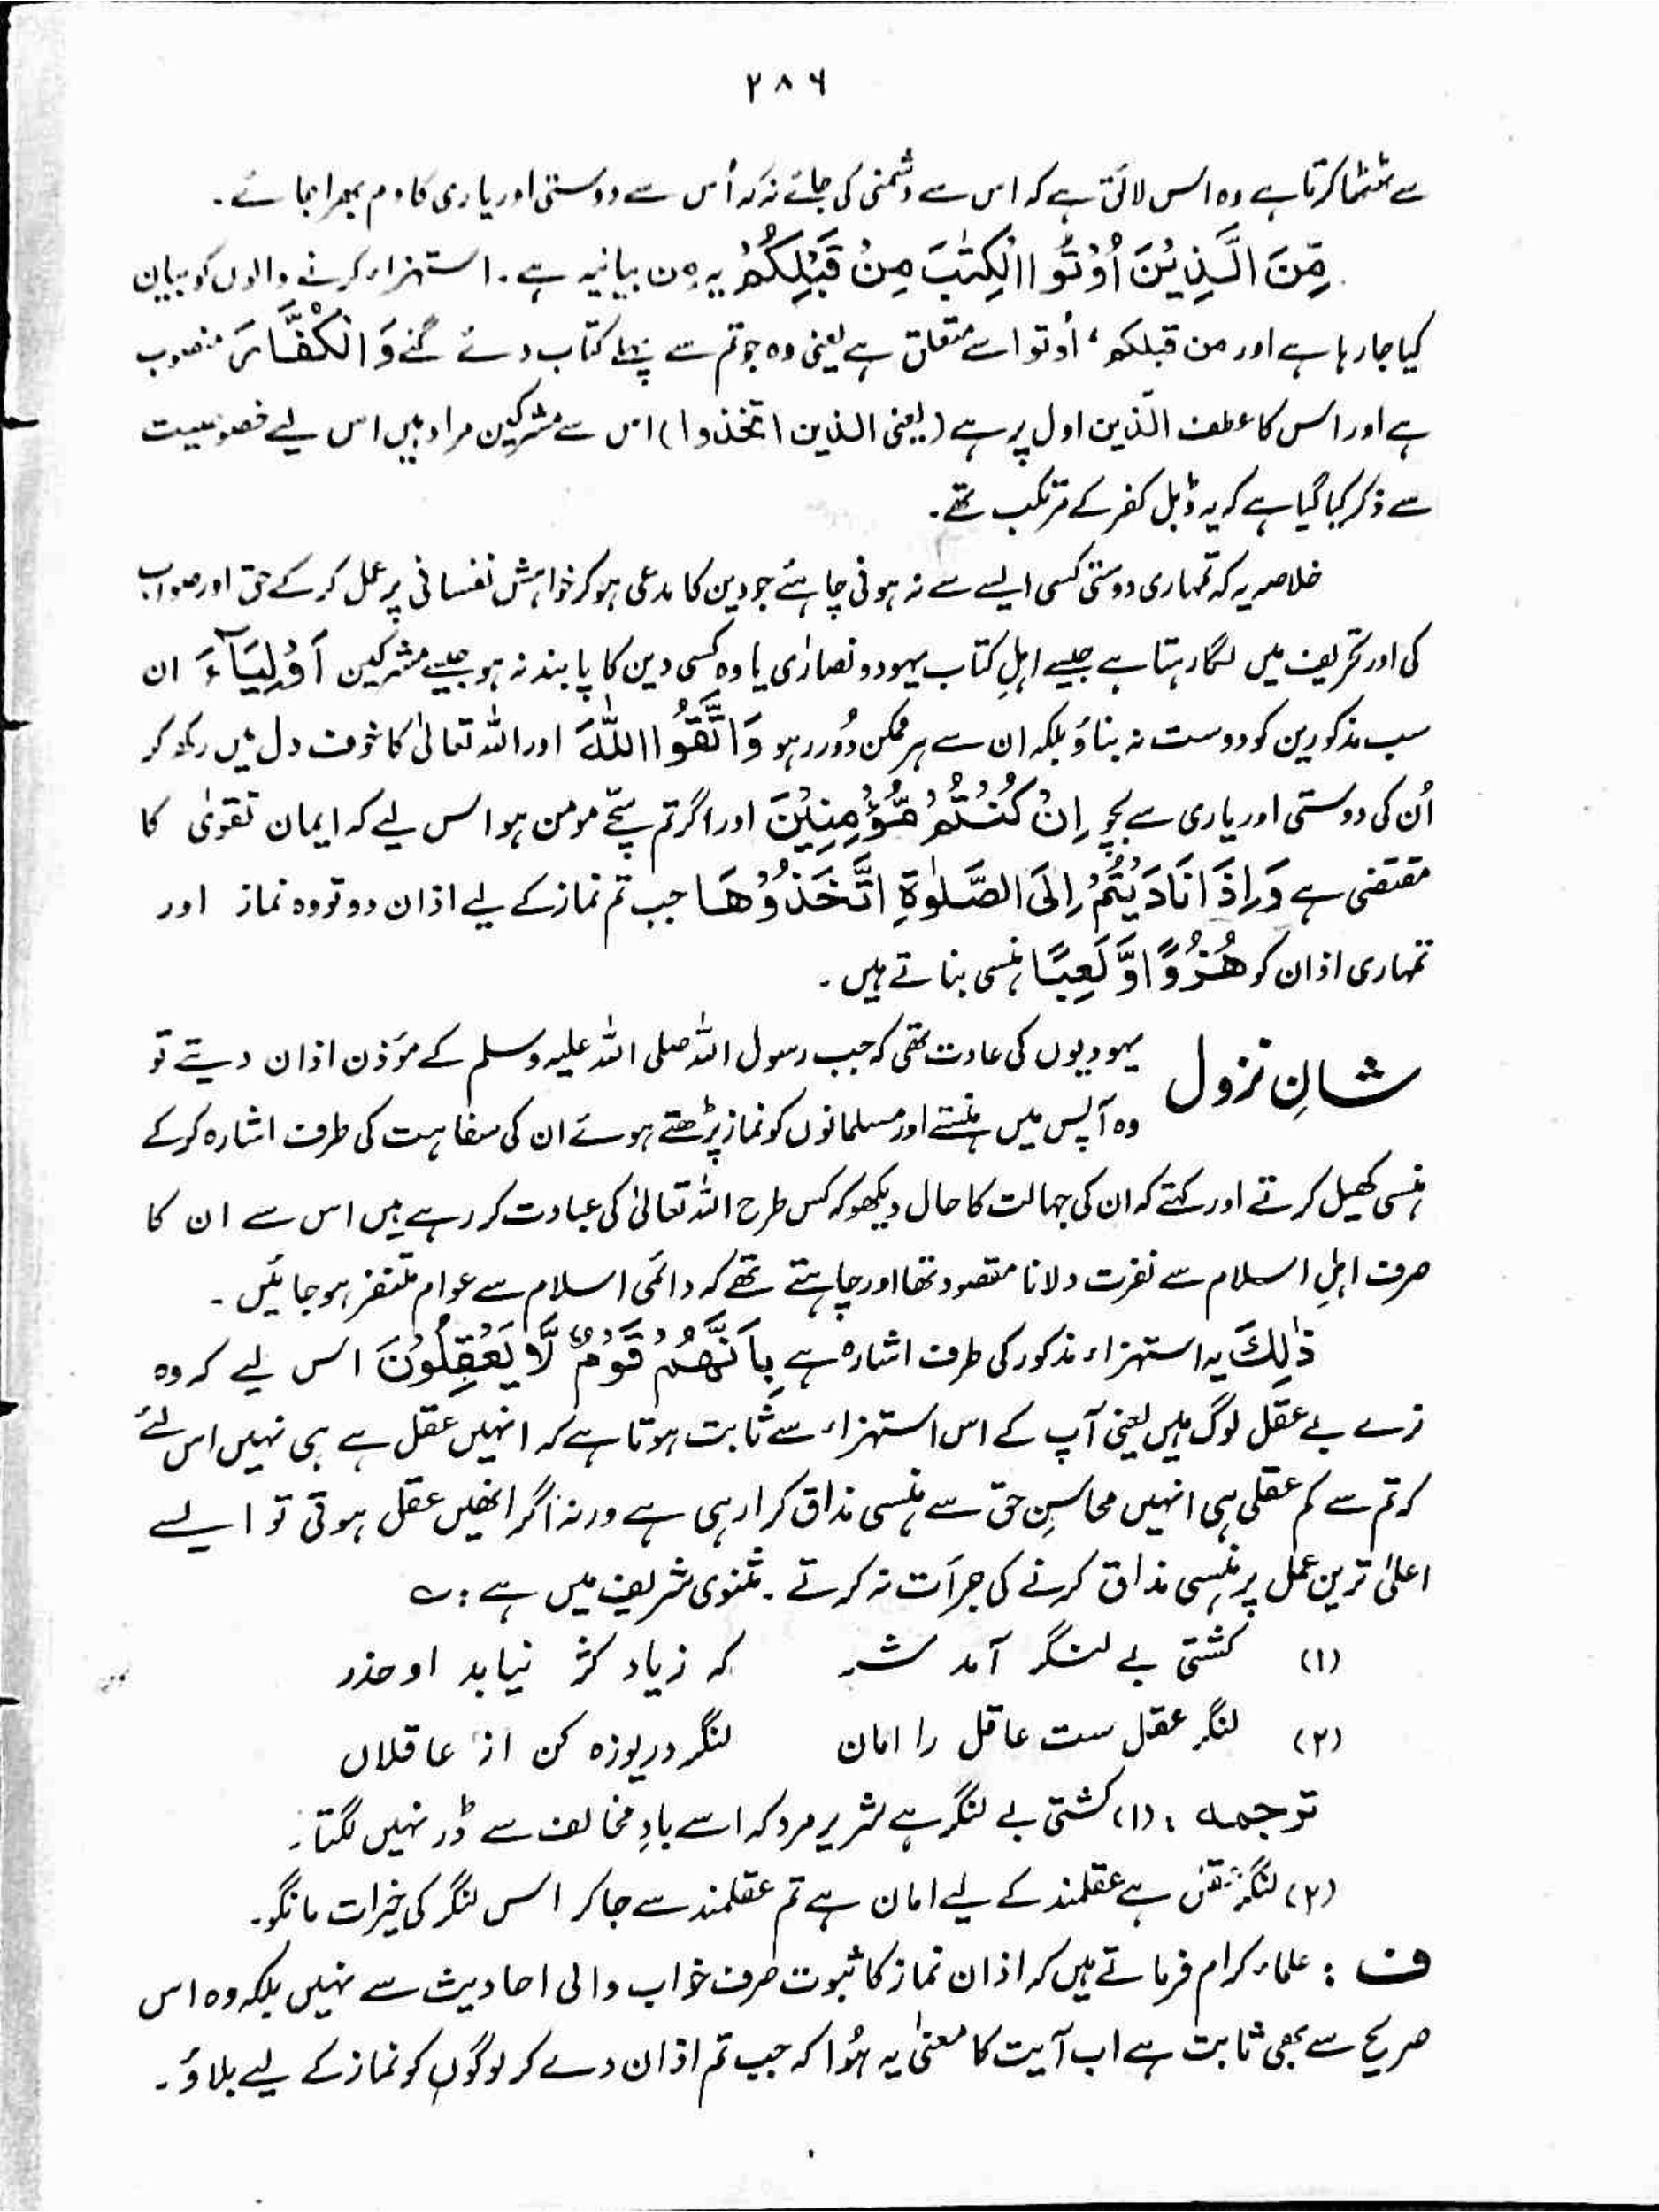 ۲۸۶
سے ٹھٹھا کرتا ہے وہ اس لائق ہے کہ اس سے دشمنی کی جائے نہ کہ اُس سے دوستی اور یاری کا دم بھرا جائے۔
مِّنَ الَّذِیْنَ اُوْتُوا الْکِتٰبَ مِنْ قَبْلِکُمْ یہ من بیانیہ ہے۔ استہزاء کرنے والوں کو بیان
کیا جا رہا ہے اور من قبلکم، اُوتوا سے متعلق ہے یعنی وہ جو تم سے پہلے کتاب دئے گئے وَالْکُفَّارَ منصوب
ہے اور اس کا عطف الّذین اول پر ہے (یعنی الذین اتخذوا) اس سے مشرکین مراد ہیں اس لیے خصوصیت
سے ذکر کیا گیا ہے کہ یہ ڈبل کفر کے مرتکب تھے۔
خلاصہ یہ کہ تمہاری دوستی کسی ایسے سے نہ ہونی چاہئے جو دین کا مدعی ہو کر خواہش نفسانی پر عمل کر کے حق اور صواب
کی اور تحریف میں لگا رہتا ہے جیسے اہلِ کتاب یہود و نصاریٰ یا وہ کسی دین کا پابند نہ ہو جیسے مشرکین اَوْلِیَآءَ ان
سب مذکورین کو دوست نہ بناؤ بلکہ ان سے ہر ممکن دُور رہو وَاتَّقُوا اللّٰہَ اور اللہ تعالیٰ کا خوف دل میں رکھ کر
اُن کی دوستی اور یاری سے بچو اِنْ کُنْتُمْ مُّؤْمِنِیْنَ اور اگر تم سچّے مومن ہو اس لیے کہ ایمان تقویٰ کا
مقتضی ہے وَاِذَا نَادَیْتُمْ اِلَی الصَّلٰوۃِ اتَّخَذُوْھَا جب تم نماز کے لیے اذان دو تو وہ نماز اور
تمہاری اذان کو ھُزُوًا وَّلَعِبًا ہنسی بناتے ہیں۔
شانِ نزول یہودیوں کی عادت تھی کہ جب رسول اللہ صلی اللہ علیہ وسلم کے مؤذن اذان دیتے تو
وہ آپس میں ہنستے اور مسلمانوں کو نماز پڑھتے ہوئے ان کی سفاہت کی طرف اشارہ کر کے
ہنسی کھیل کرتے اور کہتے کہ ان کی جہالت کا حال دیکھو کہ کس طرح اللہ تعالیٰ کی عبادت کر رہے ہیں اس سے ان کا
صرف اہلِ اسلام سے نفرت دلانا مقصود تھا اور چاہتے تھے کہ دائمی اسلام سے عوام متنفر ہو جائیں۔
ذٰلِکَ یہ استہزاء مذکور کی طرف اشارہ ہے بِاَنَّھُمْ قَوْمٌ لَّا یَعْقِلُوْنَ اس لیے کہ وہ
نرے بے عقل لوگ ہیں یعنی آپ کے اس استہزاء سے ثابت ہوتا ہے کہ انہیں عقل ہے ہی نہیں اس لئے
کہ تم سے کم عقلی ہی انہیں محاسنِ حق سے ہنسی مذاق کرا رہی ہے ورنہ اگر انھیں عقل ہوتی تو ایسے
اعلیٰ ترین عمل پر ہنسی مذاق کرنے کی جرأت نہ کرتے۔ مثنوی شریف میں ہے : ؎
(۱) کشتی بے لنگر آمد شر کہ زباد کژ نیابد او حذر
(۲) لنگر عقل ست عاقل را امان لنگر دریوزہ کن از عاقلاں
ترجمہ : (۱) کشتی بے لنگر ہے شریر مرد کہ اسے بادِ مخالف سے ڈر نہیں لگتا۔
(۲) لنگر عقل ہے عقلمند کے لیے امان ہے تم عقلمند سے جا کر اس لنگر کی خیرات مانگو۔
ف : علماء کرام فرماتے ہیں کہ اذان نماز کا ثبوت صرف خواب والی احادیث سے نہیں بلکہ وہ اس
صریح سے بھی ثابت ہے اب آیت کا معنیٰ یہ ہُوا کہ جب تم اذان دے کر لوگوں کو نماز کے لیے بلاؤ۔